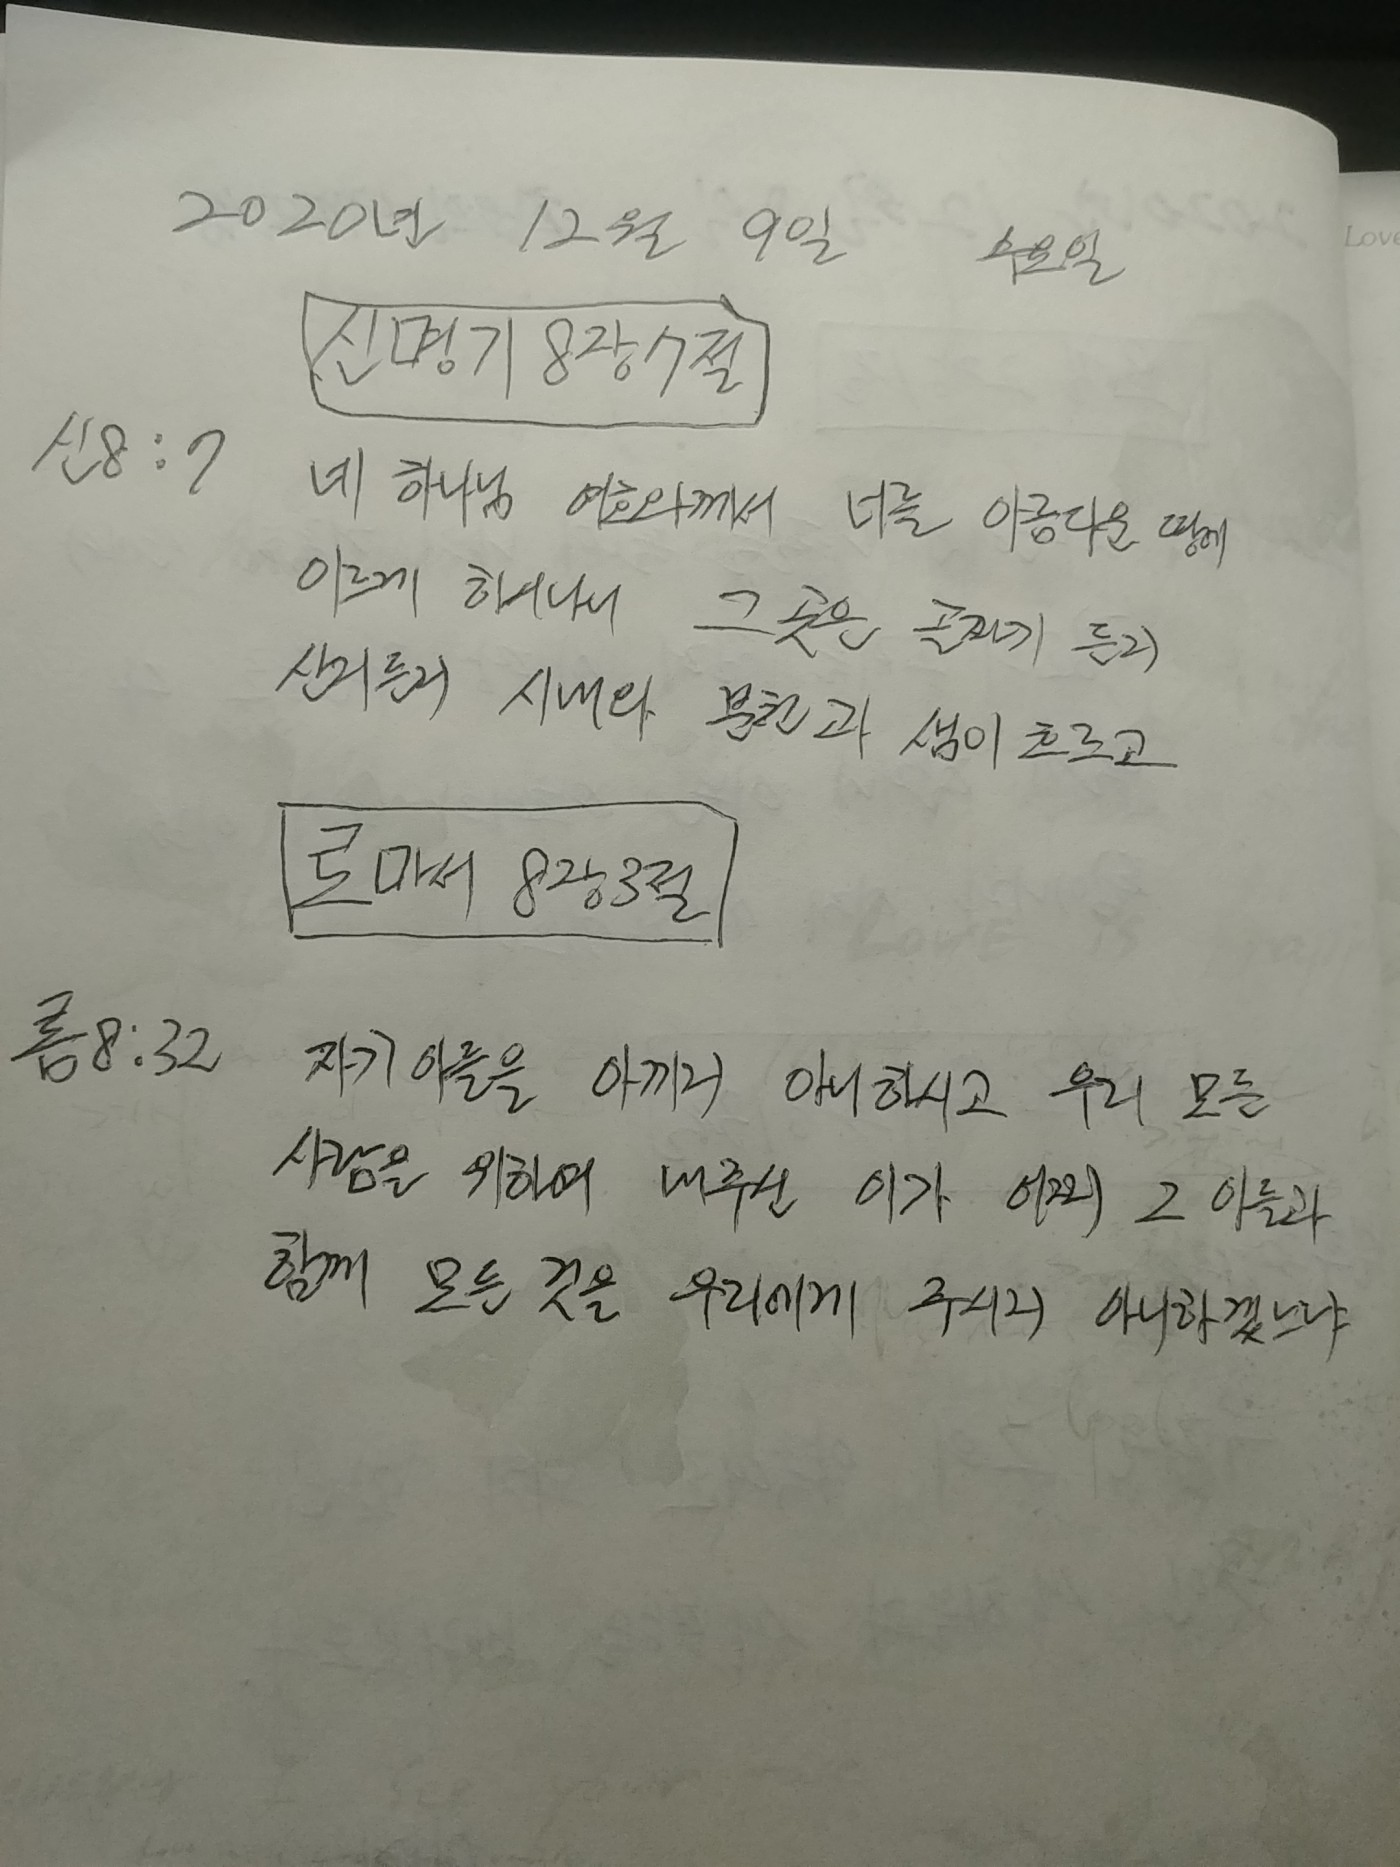 2020년 12월 9일 수요일
신명기 8장 7절
신8:7 네 하나님 여호와께서 너를 아름다운 땅에
이르게 하시나니 그 곳은 골짜기 든지
산지든지 시내와 분천과 샘이 흐르고
로마서 8장 3절
롬8:32 자기 아들을 아끼지 아니하시고 우리 모든
사람을 위하여 내주신 이가 어찌 그 아들과
함께 모든 것을 우리에게 주시지 아니하겠느냐
Love